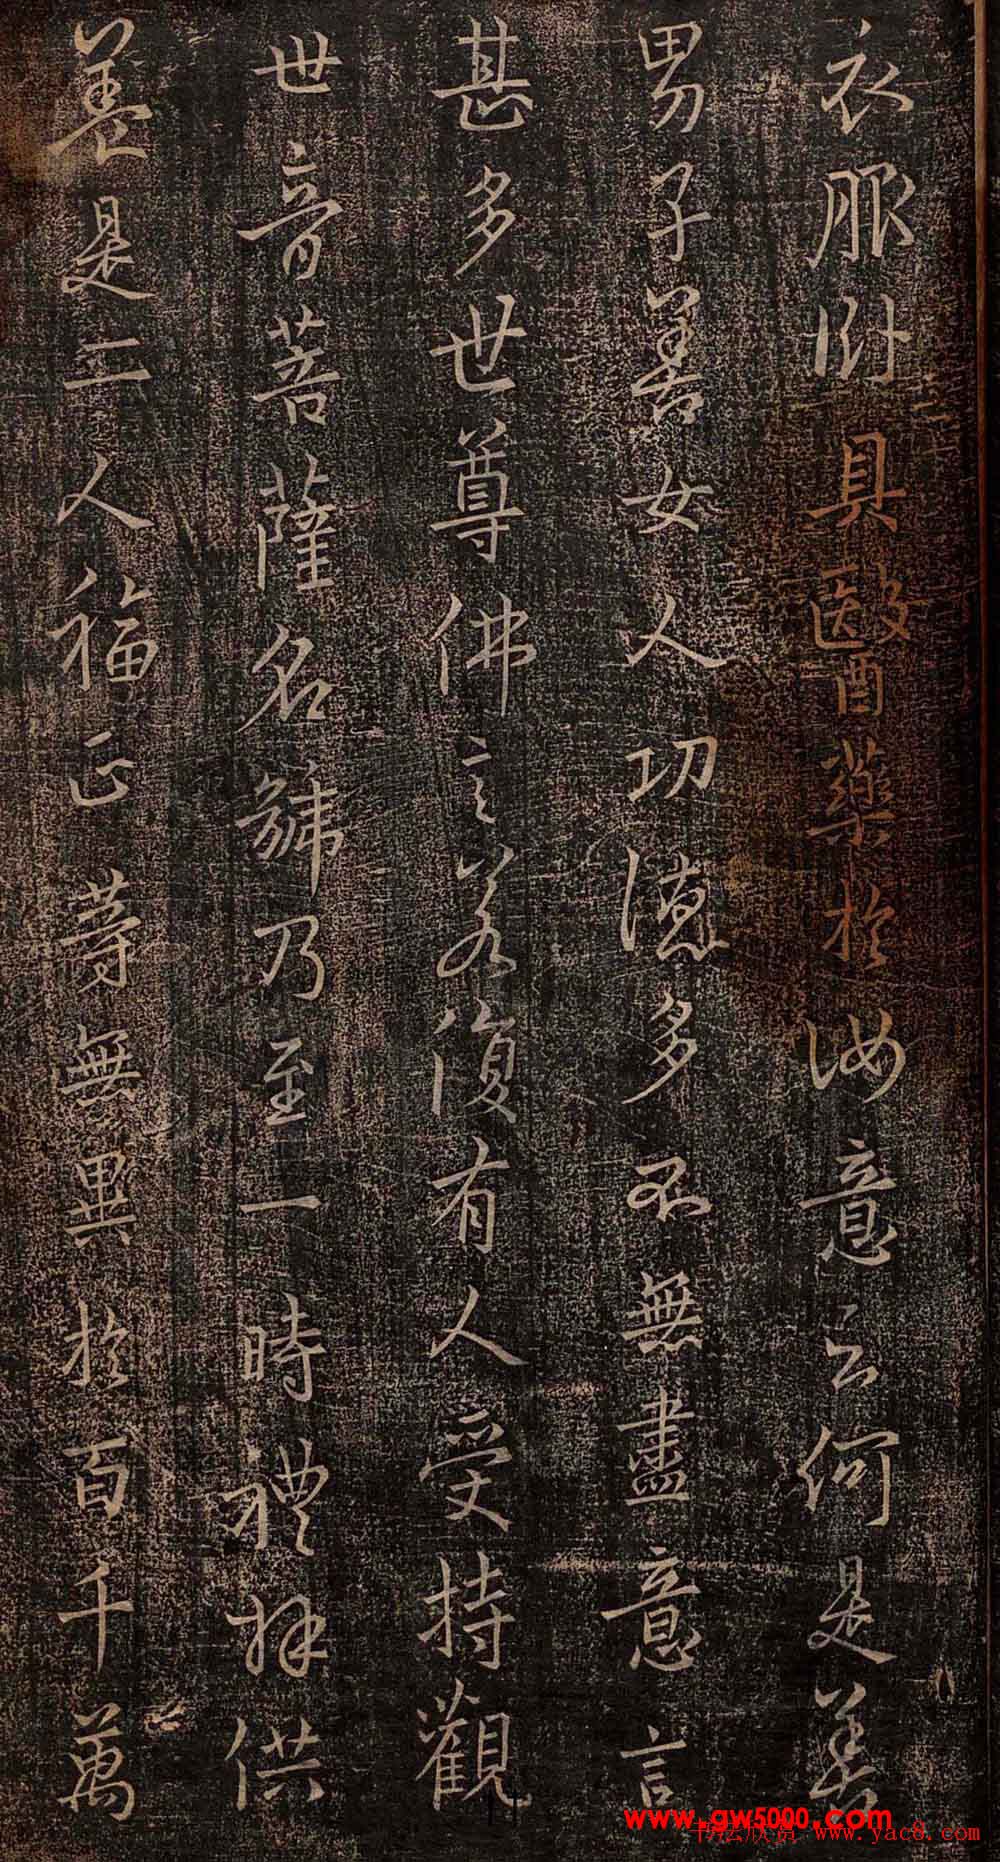 衣服卧具醫藥於汝意云何是善
男子善女人功德多不無盡意言
甚多世尊佛言若復有人受持觀
世音菩薩名號乃至一時禮拜供
養是二人福正等無異於百千萬
www.gw5000.com
书法欣赏 www.yac8.com